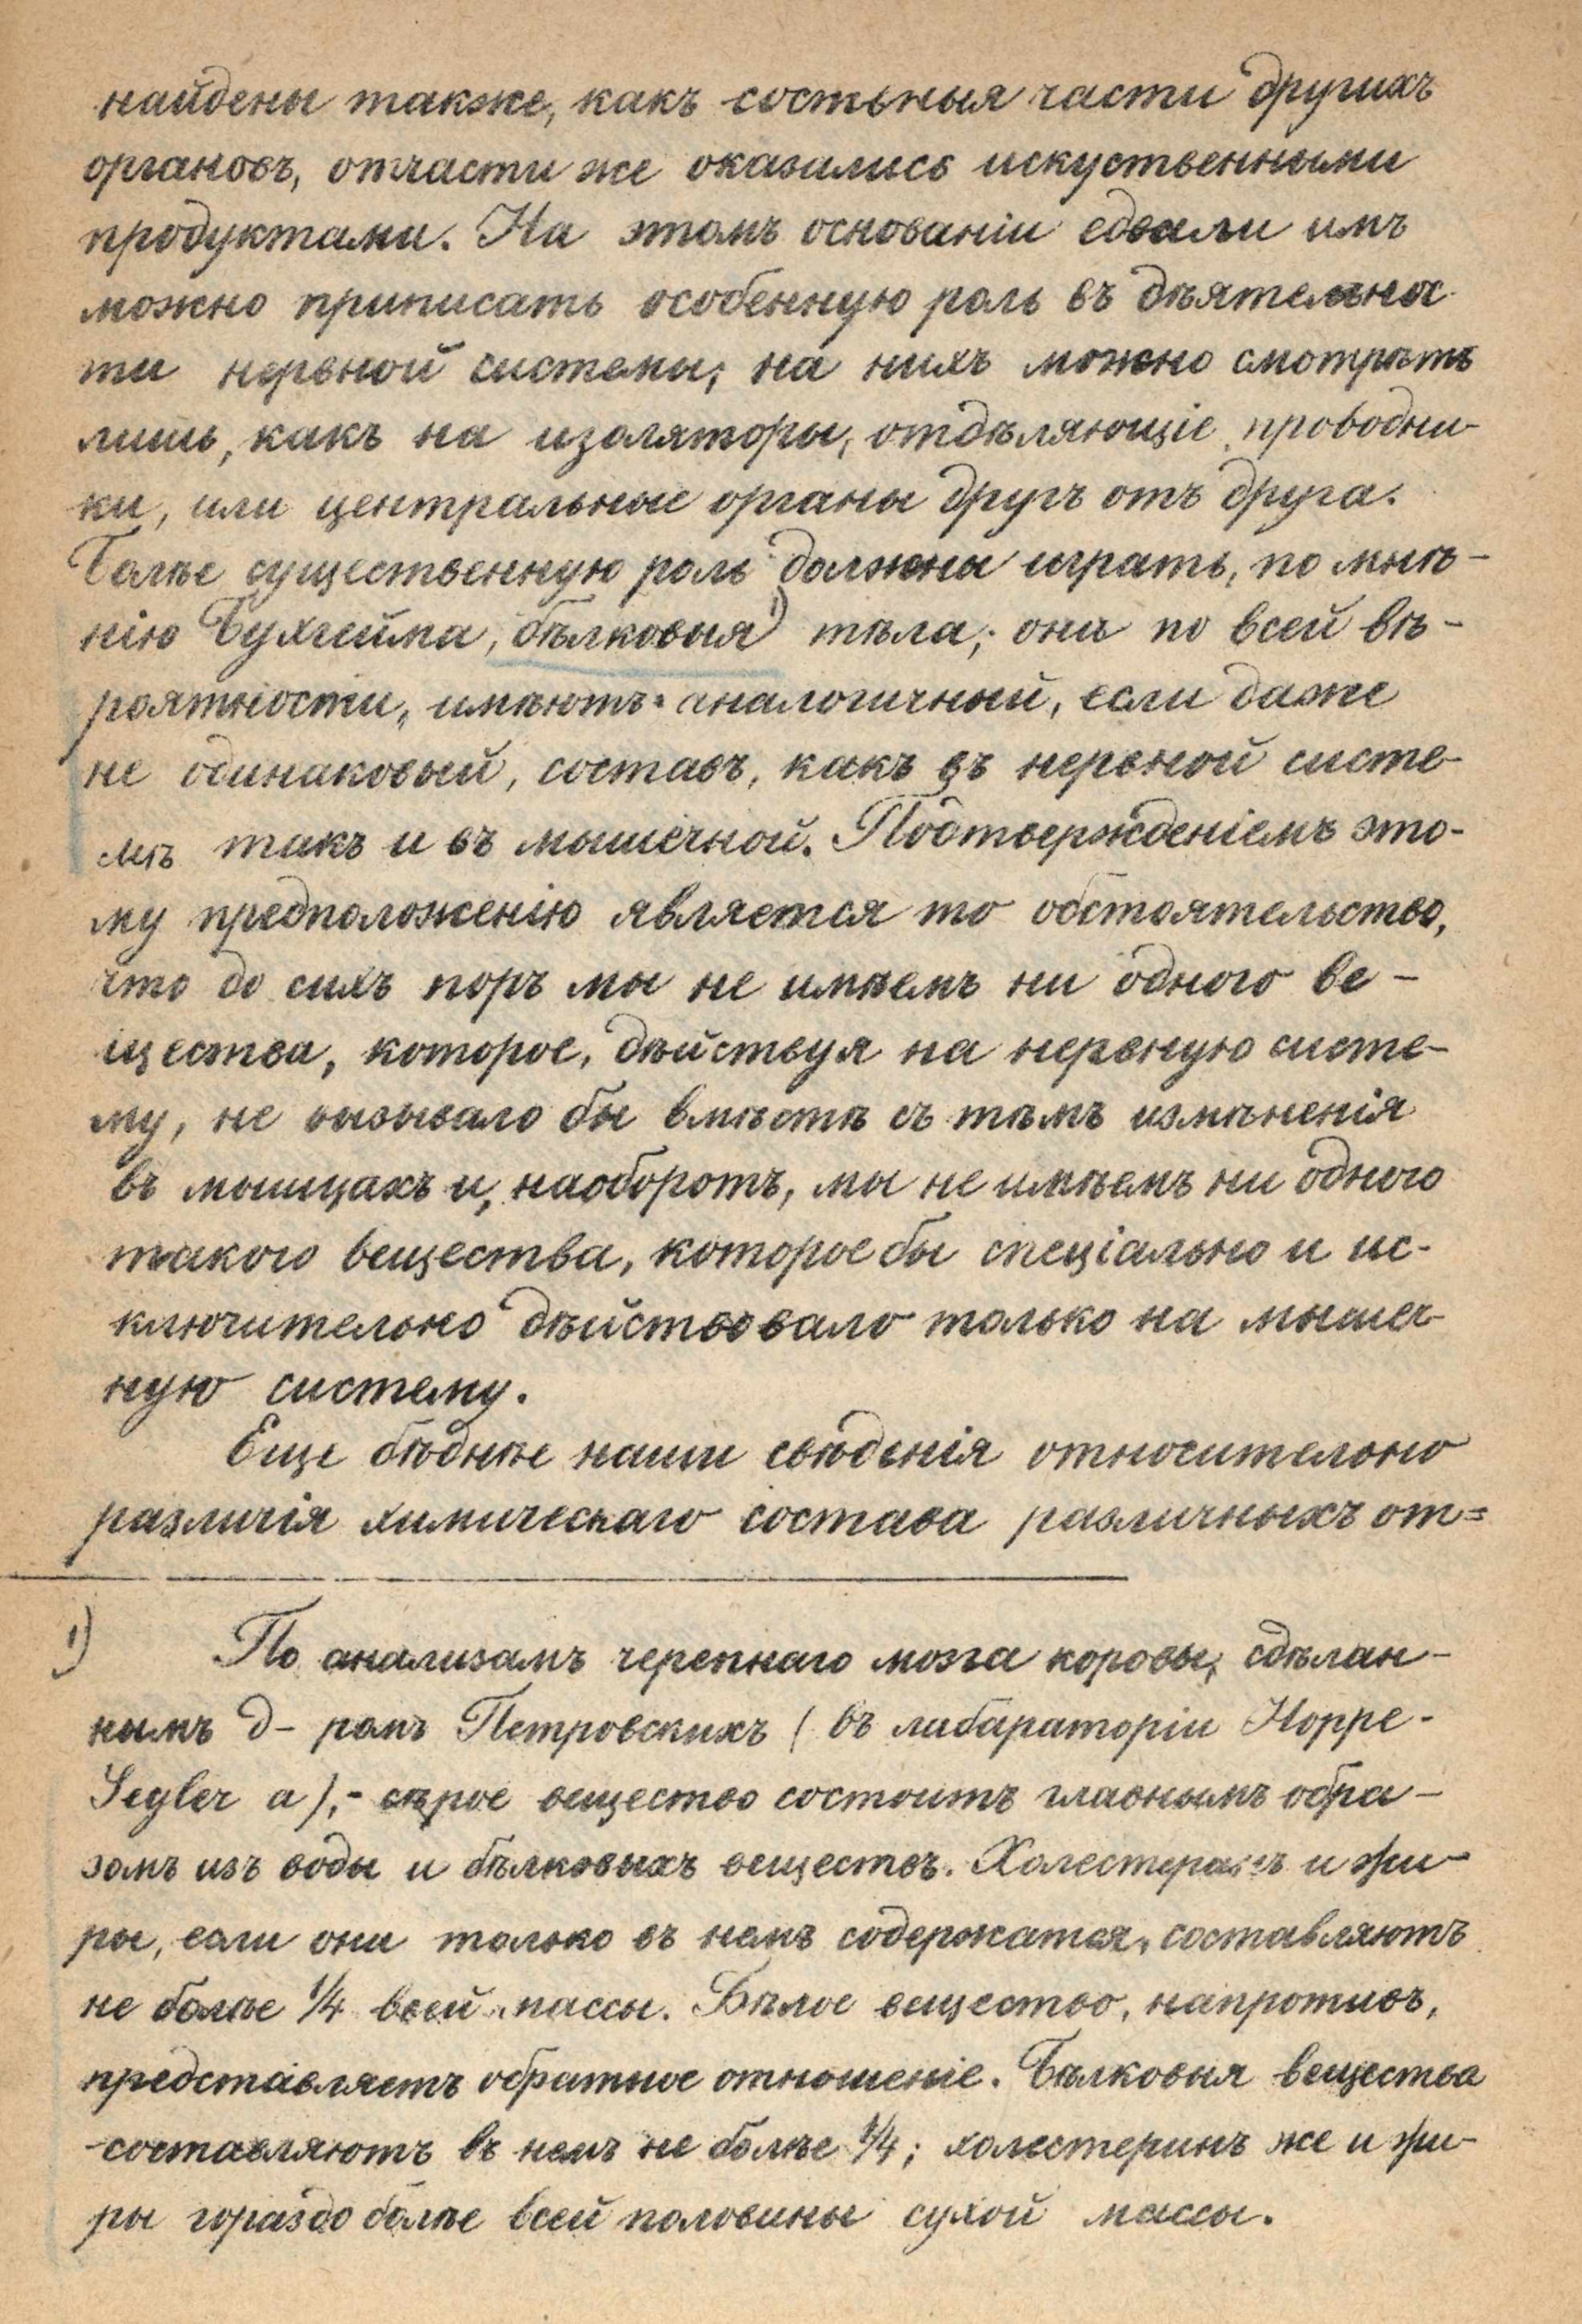 найдены также, какъ состьныя части другихъ
органовъ, отчасти же оказались искуственными
продуктами. На этомъ основаніи едвали имъ
можно приписать особенную роль въ дѣятельнос-
ти нервной системы; на нихъ можно смотрѣть
лишь, какъ на изоляторы, отдѣляющіе проводни-
ки, или центральные органы другъ отъ друга.
Болѣе существенную роль должны играть, по мнѣ-
нію Бухгейма, бѣлковыя ¹) тѣла; они по всей вѣ-
роятности, имѣютъ аналогичный, если даже
не одинаковый, составъ, какъ въ нервной систе-
мѣ такъ и въ мышечной. Подтвержденіемъ это-
му предположенію является то обстоятельство,
что до сихъ поръ мы не имѣемъ ни одного ве-
щества, которое, дѣйствуя на нервную систе-
му, не вызывало бы вмѣстѣ съ тѣмъ измѣненія
въ мышцахъ и, наоборотъ, мы не имѣемъ ни одного
такого вещества, которое бы спеціально и ис-
ключительно дѣйствовало только на мышеч-
ную систему.
Еще бѣднѣе наши свѣденія относительно
различія химическаго состава различныхъ от=
¹) По анализамъ черепнаго мозга коровы, сдѣлан-
нымъ д-ромъ Петровскихъ (въ лабараторіи Hoppe-
Segler а),- сѣрое вещество состоитъ главнымъ обра-
зомъ изъ воды и бѣлковыхъ веществъ. Холестеринъ и жи-
ры, если они только въ немъ содержатся, составляютъ
не болѣе 1/4 всей массы. Бѣлое вещество, напротивъ,
представляетъ обратное отношеніе. Бѣлковыя вещества
составляютъ въ немъ не болѣе 1/4; холестеринъ же и жи-
ры гораздо болѣе всей половины сухой массы.